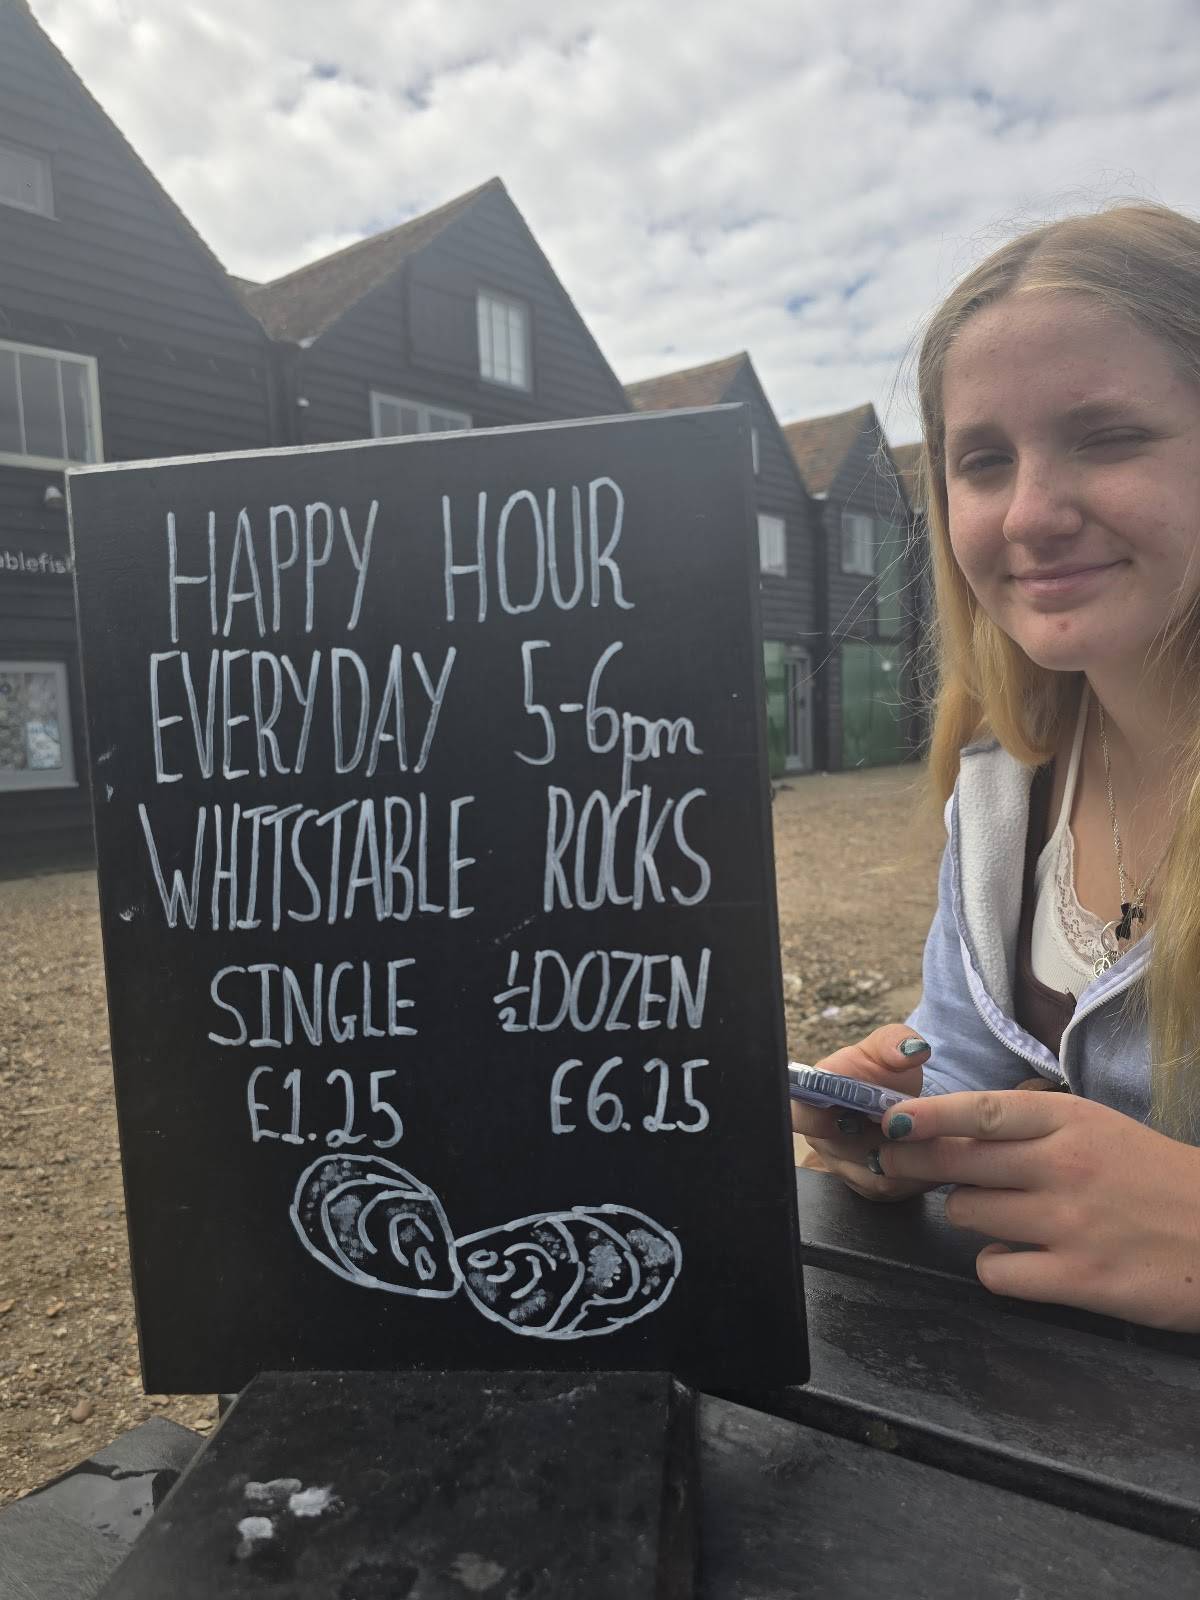 HAPPY HOUR
EVERYDAY 5-6pm
WHITSTABLE ROCKS
SINGLE ½DOZEN
£1.25 £6.25